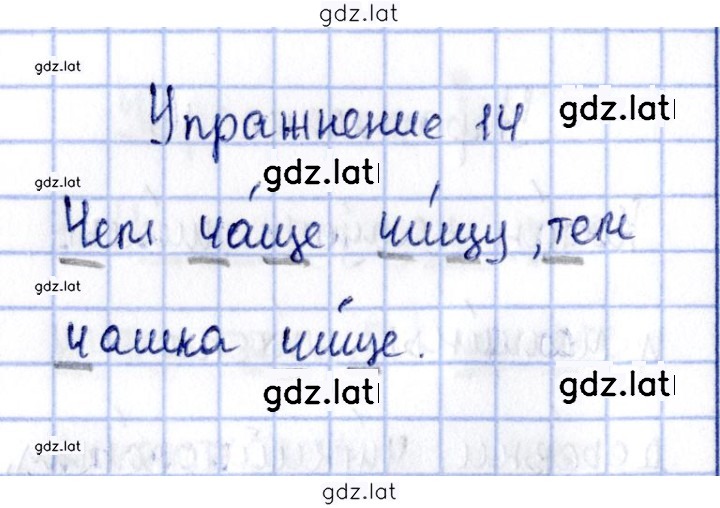 gdz.lat
gdz.lat
Упражнение 14
gdz.lat
gdz.lat
gdz.lat
Чем ча́ще чи́щу, тем
gdz.lat
чашка чи́ще.
gdz.lat
gdz.lat
gdz.lat
gdz.lat